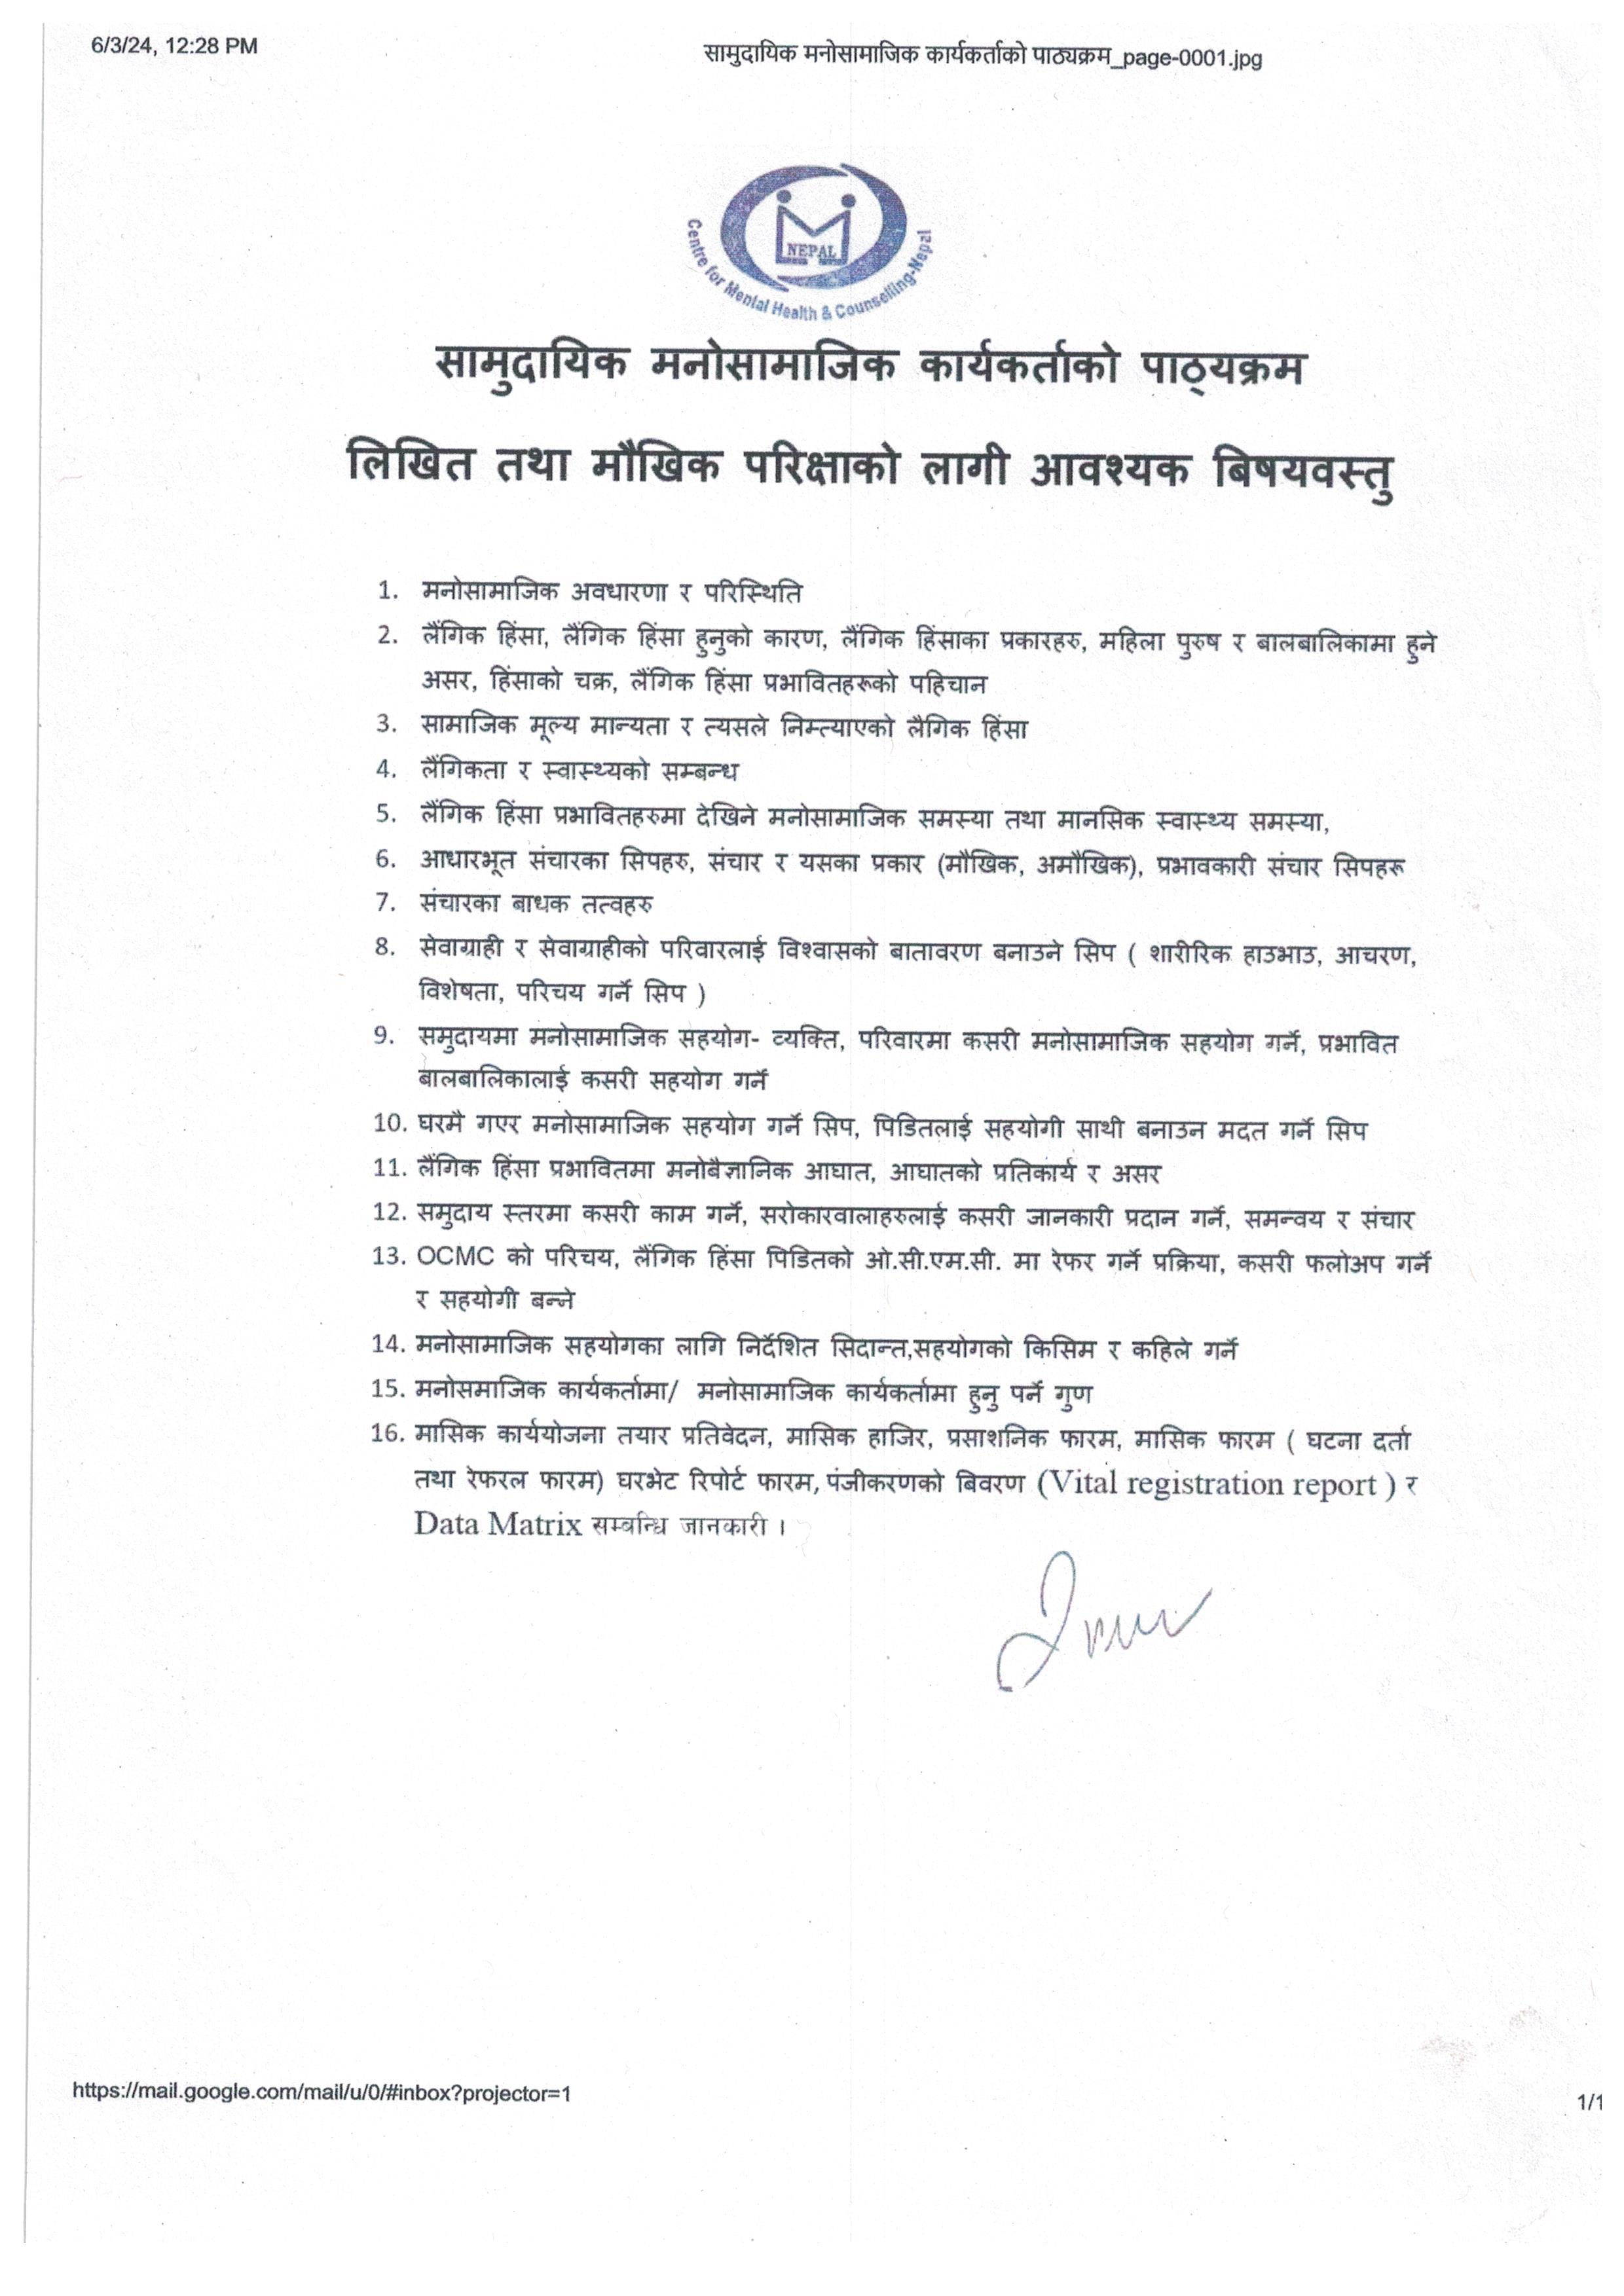 6/3/24, 12:28 PM
सामुदायिक मनोसामाजिक कार्यकर्ताको पाठ्यक्रम_page-0001.jpg
NEPAL
Centre for Mental Health & Counselling-Nepal
सामुदायिक मनोसामाजिक कार्यकर्ताको पाठ्यक्रम
लिखित तथा मौखिक परिक्षाको लागी आवश्यक बिषयवस्तु
1. मनोसामाजिक अवधारणा र परिस्थिति
2. लैंगिक हिंसा, लैंगिक हिंसा हुनुको कारण, लैंगिक हिंसाका प्रकारहरु, महिला पुरुष र बालबालिकामा हुने
असर, हिंसाको चक्र, लैंगिक हिंसा प्रभावितहरूको पहिचान
3. सामाजिक मूल्य मान्यता र त्यसले निम्त्याएको लैगिक हिंसा
4. लैंगिकता र स्वास्थ्यको सम्बन्ध
5. लैंगिक हिंसा प्रभावितहरुमा देखिने मनोसामाजिक समस्या तथा मानसिक स्वास्थ्य समस्या,
6. आधारभूत संचारका सिपहरु, संचार र यसका प्रकार (मौखिक, अमौखिक), प्रभावकारी संचार सिपहरू
7. संचारका बाधक तत्वहरु
8. सेवाग्राही र सेवाग्राहीको परिवारलाई विश्वासको बातावरण बनाउने सिप ( शारीरिक हाउभाउ, आचरण,
विशेषता, परिचय गर्ने सिप )
9. समुदायमा मनोसामाजिक सहयोग- व्यक्ति, परिवारमा कसरी मनोसामाजिक सहयोग गर्ने, प्रभावित
बालबालिकालाई कसरी सहयोग गर्ने
10. घरमै गएर मनोसामाजिक सहयोग गर्ने सिप, पिडितलाई सहयोगी साथी बनाउन मदत गर्ने सिप
11. लैंगिक हिंसा प्रभावितमा मनोबैज्ञानिक आघात, आघातको प्रतिकार्य र असर
12. समुदाय स्तरमा कसरी काम गर्ने, सरोकारवालाहरुलाई कसरी जानकारी प्रदान गर्ने, समन्वय र संचार
13. OCMC को परिचय, लैंगिक हिंसा पिडितको ओ.सी.एम.सी. मा रेफर गर्ने प्रक्रिया, कसरी फलोअप गर्ने
र सहयोगी बन्ने
14. मनोसामाजिक सहयोगका लागि निर्देशित सिदान्त,सहयोगको किसिम र कहिले गर्ने
15. मनोसमाजिक कार्यकर्तामा/ मनोसामाजिक कार्यकर्तामा हुनु पर्ने गुण
16. मासिक कार्ययोजना तयार प्रतिवेदन, मासिक हाजिर, प्रसाशनिक फारम, मासिक फारम ( घटना दर्ता
तथा रेफरल फारम) घरभेट रिपोर्ट फारम, पंजीकरणको बिवरण (Vital registration report ) र
Data Matrix सम्बन्धि जानकारी ।
https://mail.google.com/mail/u/0/#inbox?projector=1
1/1